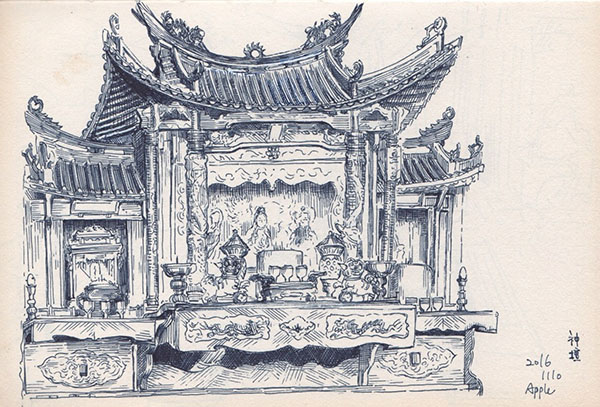 神壇
2016
1110
Apple